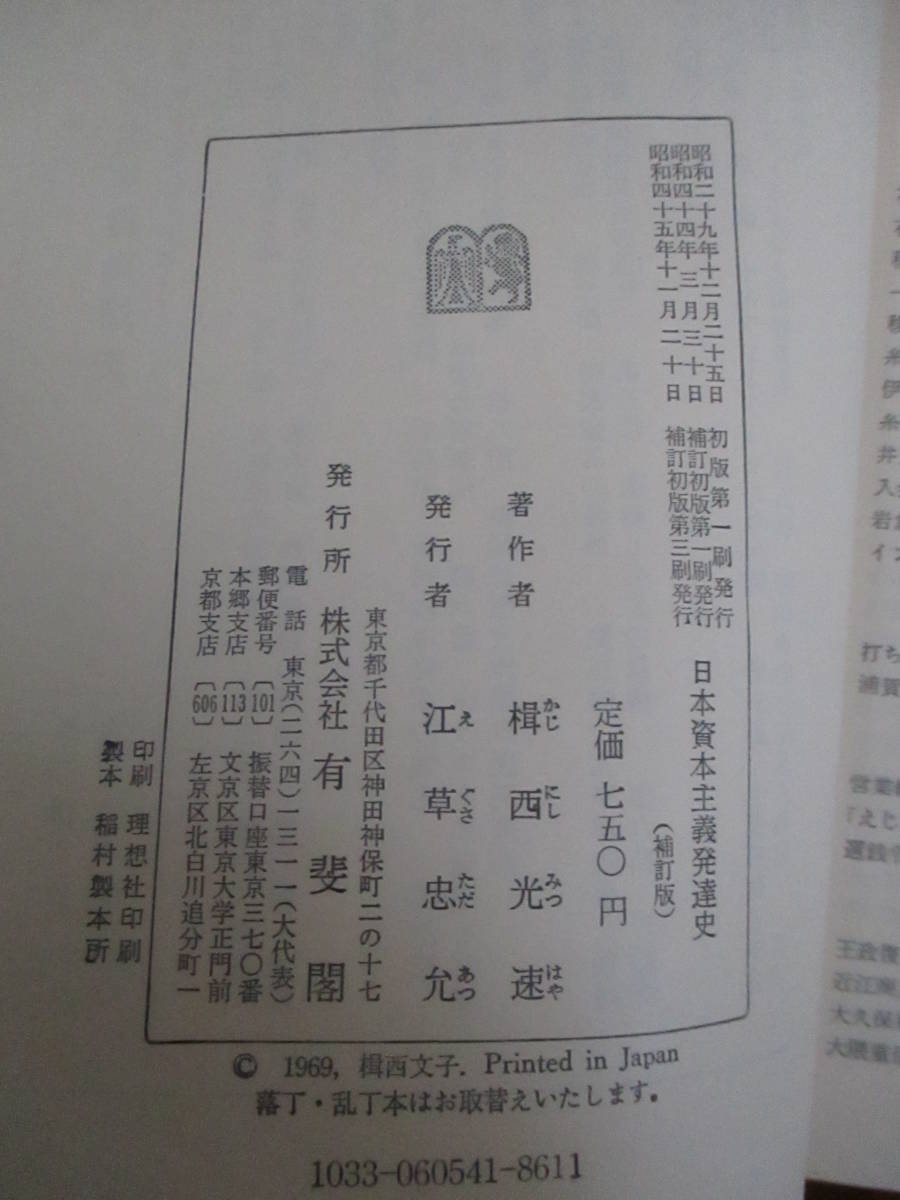 昭和二十九年十二月二十五日 初版第一刷発行
昭和四十四年 三月三十日 補訂初版第一刷発行
昭和四十五年十一月二十日 補訂初版第三刷発行
日本資本主義発達史
(補訂版)
定価 七五〇円
著作者 楫西光速
かじ にし みつ はや
発行者 江草忠允
え ぐさ ただ あつ
東京都千代田区神田神保町二の十七
発行所 株式会社 有斐閣
電話 東京(二六四)一三一一(大代表)
郵便番号 〔101〕 振替口座東京三七〇番
本郷支店 〔113〕 文京区東京大学正門前
京都支店 〔606〕 左京区北白川追分町一
印刷 理想社印刷
製本 稲村製本所
© 1969, 楫西文子. Printed in Japan
落丁・乱丁本はお取替えいたします。
1033-060541-8611
伊
糸
井
入
岩倉
イン
打ち
浦賀
営業
「えじ
選銭令
王政復
近江
大久保
大隈重信